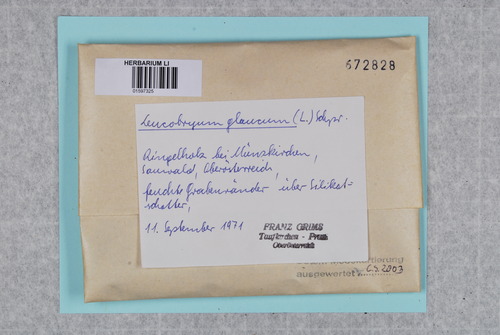 HERBARIUM LI
672828
Leucobryum glaucum (L.) Schpr.
Ringelholz bei Münzkirchen,
Sauwald, Oberösterreich,
feuchte Grabenränder über Silikat-
schotter,
11. September 1971
FRANZ GRIMS
Taufkirchen - Pram
Oberösterreich
ausgewertet 6.3.2003